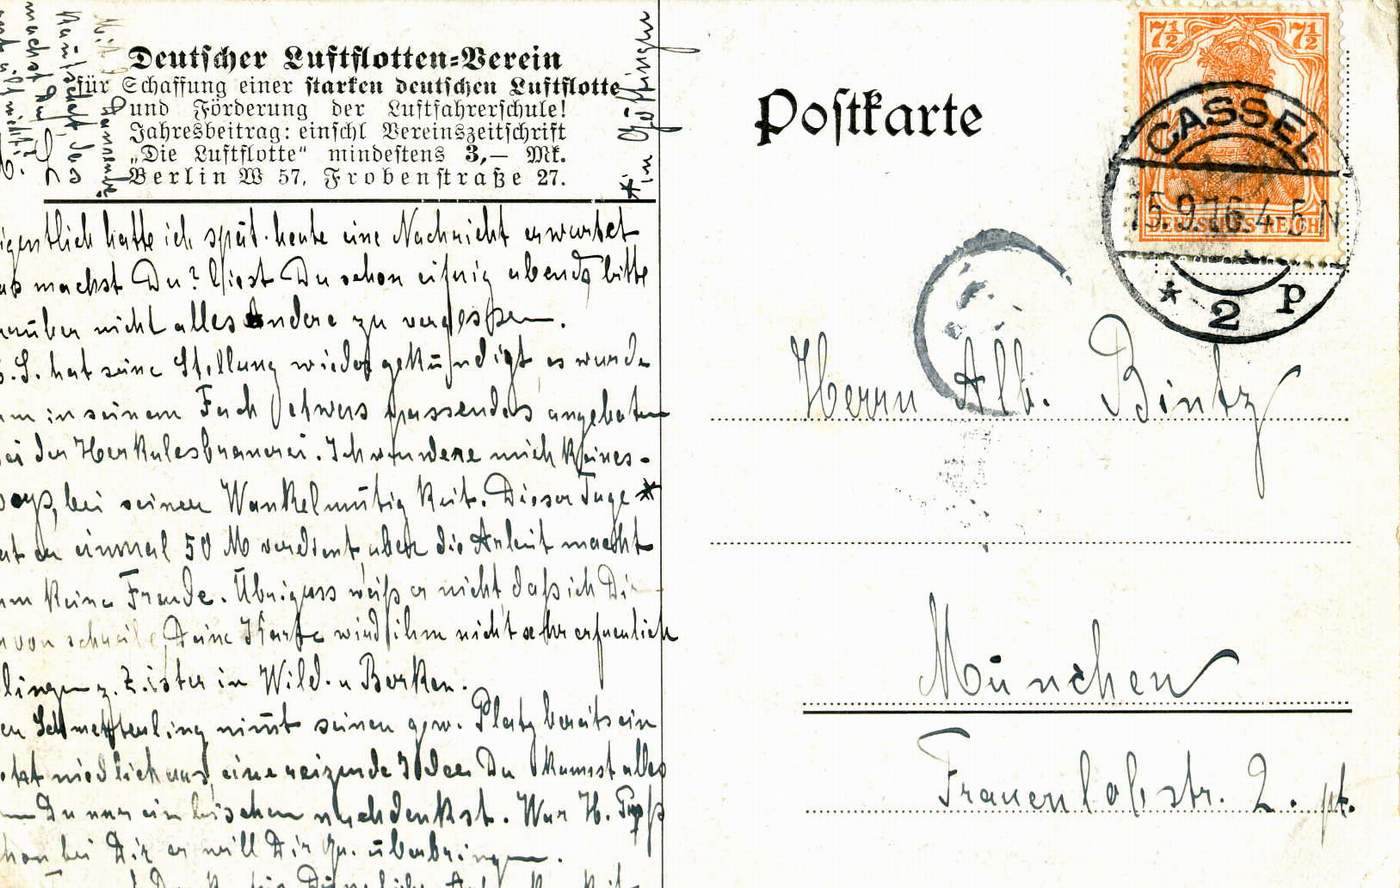 Deutscher Luftflotten-Verein
für Schaffung einer starken deutschen Luftflotte
und Förderung der Luftfahrerschule!
Jahresbeitrag: einschl Vereinszeitschrift
„Die Luftflotte“ mindestens 3,— Mk.
Berlin W 57, Frobenstraße 27.
* in Göttingen
machst Du
igentlich hatte ich spät. heute eine Nachricht erwartet
as machst Du? Liest Du schon eifrig abends bitte
arüber nicht alles andere zu vergessen.
S. hat seine Stellung wieder gekündigt es wurde
hm in seinem Fach etwas passendes angeboten
bei der Herkulesbrauerei. Ich wundere mich keines-
wegs, bei seiner Wankelmütigkeit. Dieser Tage *
hat er einmal 50 M verdient aber die Arbeit macht
ihm keine Freude. Übrigens weiß er nicht daß ich Dir
avon schreibe, Deine Karte wird ihm nicht sehr erfreulich
klingen z. Z. ist er in Wild. u Borken.
en Schmetterling nimmt seinen gew. Platz bereits ein
etzt niedlich aus, eine reizende Idee Du kannst alles
Du nur ein bischen nachdenkst. War H.
schon bei Dir er will Dir Gr. überbringen.
Postkarte
7½ 7½
DEUTSCHES REICH
CASSEL
15.9.16. 4-5 N
* 2 p
Herrn Alb. Bintz
München
Frauenlobstr. 2. pt.